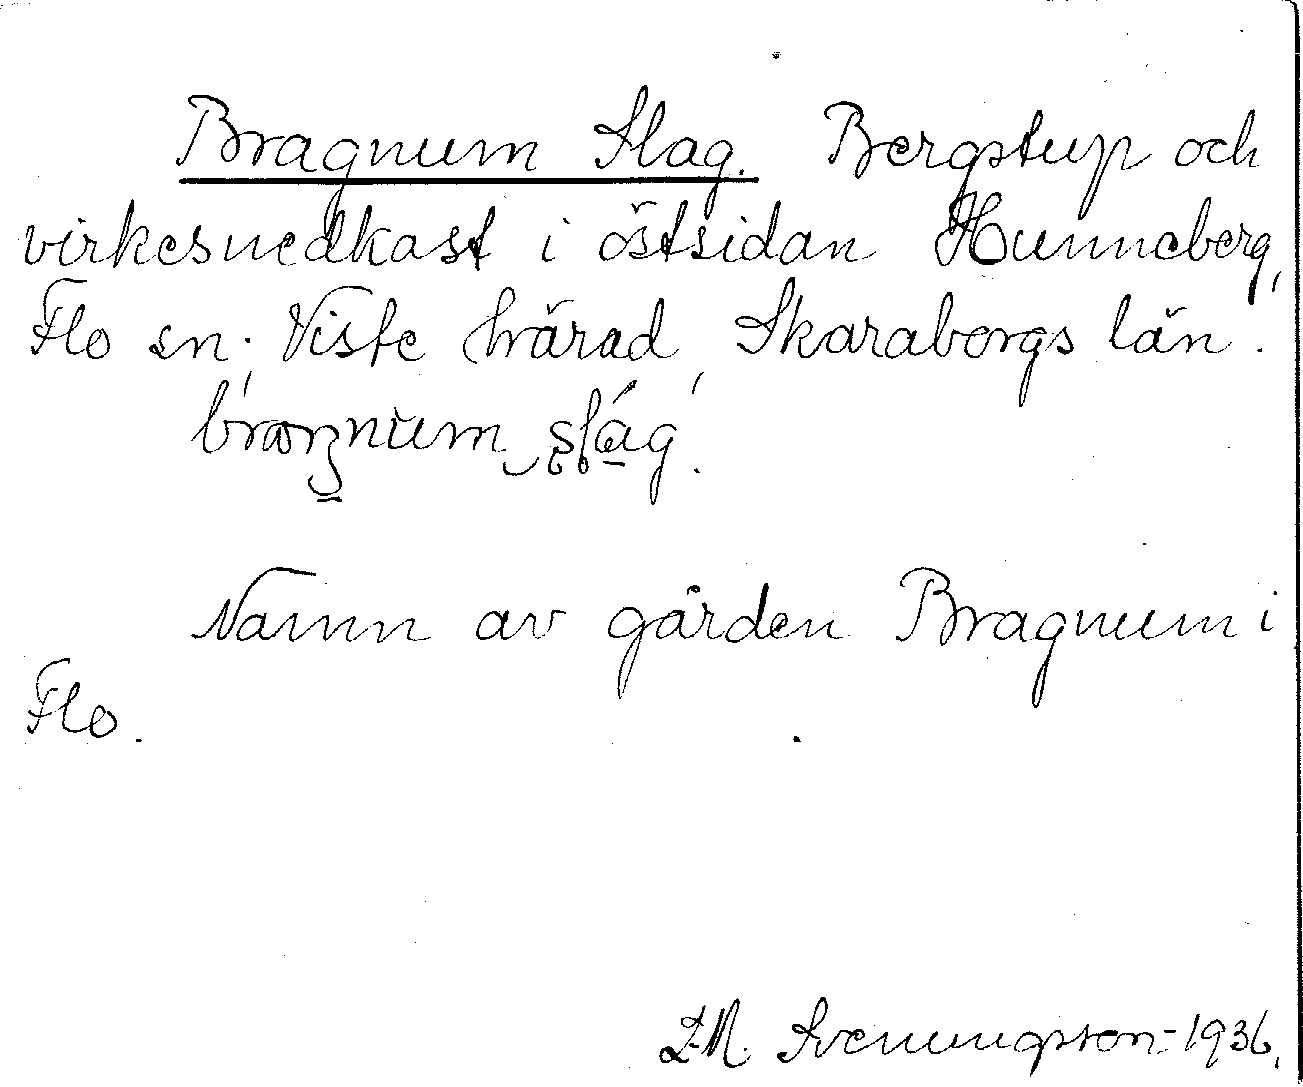 Bragnum Slag. Bergstup och
virkesnedkast i östsidan Hunneberg,
Flo sn, Viste härad, Skaraborgs län.
Namn av gården Bragnum i
Flo.
Sveningson-1936.